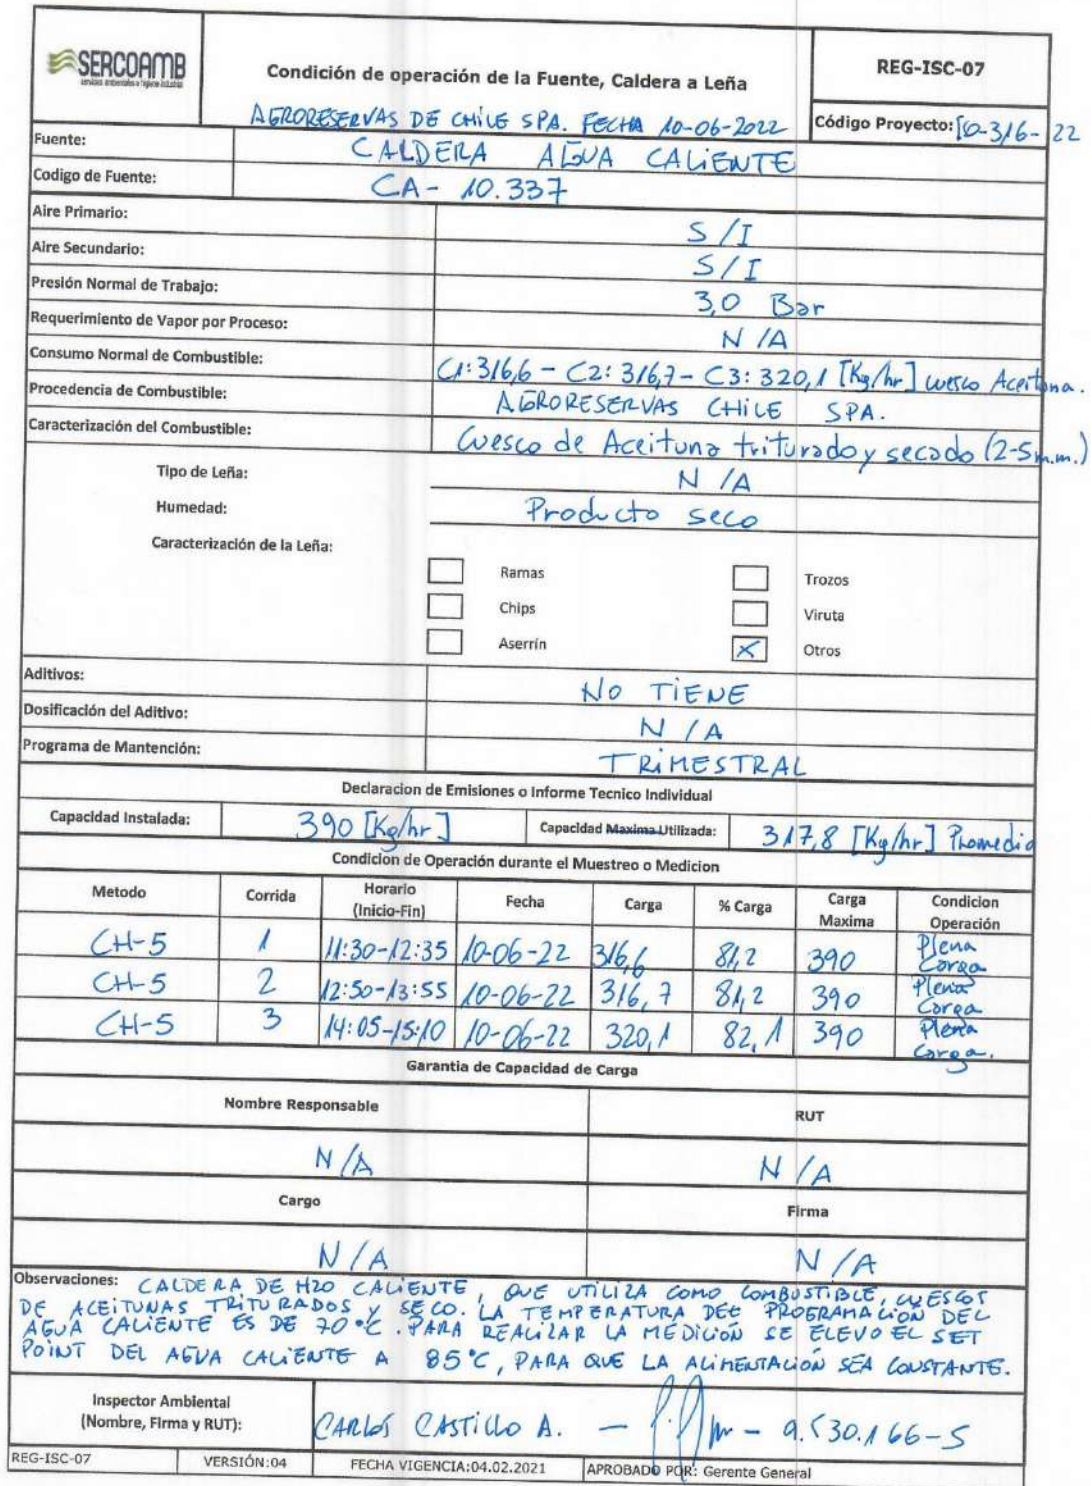 SERCOAMB
servicios ambientales e higiene industrial
Condición de operación de la Fuente, Caldera a Leña
REG-ISC-07
AGRORESERVAS DE CHILE SPA. FECHA 10-06-2022
Código Proyecto: ISO-316-22
Fuente: CALDERA AGUA CALIENTE
Codigo de Fuente: CA-10.337
Aire Primario: S/I
Aire Secundario: S/I
Presión Normal de Trabajo: 3,0 Bar
Requerimiento de Vapor por Proceso: N/A
Consumo Normal de Combustible: C1: 316,6 - C2: 316,7 - C3: 320,1 [Kg/hr] cuesco Aceituna.
Procedencia de Combustible: AGRORESERVAS CHILE SPA.
Caracterización del Combustible: Cuesco de Aceituna triturado y secado (2-5 m.m.)
Tipo de Leña: N/A
Humedad: Producto seco
Caracterización de la Leña:
Ramas Trozos
Chips Viruta
Aserrín X Otros
Aditivos: NO TIENE
Dosificación del Aditivo: N/A
Programa de Mantención: TRIMESTRAL
Declaracion de Emisiones o Informe Tecnico Individual
Capacidad Instalada: 390 [Kg/hr] Capacidad Maxima Utilizada: 317,8 [Kg/hr] Promedio
Condicion de Operación durante el Muestreo o Medicion
Metodo Corrida Horario (Inicio-Fin) Fecha Carga % Carga Carga Maxima Condicion Operación
CH-5 1 11:30-12:35 10-06-22 316,6 81,2 390 Plena Carga
CH-5 2 12:50-13:55 10-06-22 316,7 81,2 390 Plena Carga
CH-5 3 14:05-15:10 10-06-22 320,1 82,1 390 Plena Carga.
Garantia de Capacidad de Carga
Nombre Responsable RUT
N/A N/A
Cargo Firma
N/A N/A
Observaciones: CALDERA DE H2O CALIENTE, QUE UTILIZA COMO COMBUSTIBLE, CUESCOS
DE ACEITUNAS TRITURADOS Y SECO. LA TEMPERATURA DEL PROGRAMACION DEL
AGUA CALIENTE ES DE 70°C. PARA REALIZAR LA MEDICIÓN SE ELEVO EL SET
POINT DEL AGUA CALIENTE A 85°C, PARA QUE LA ALIMENTACIÓN SEA CONSTANTE.
Inspector Ambiental
(Nombre, Firma y RUT): CARLOS CASTILLO A. - 9.530.166-5
REG-ISC-07 VERSIÓN:04 FECHA VIGENCIA:04.02.2021 APROBADO POR: Gerente General